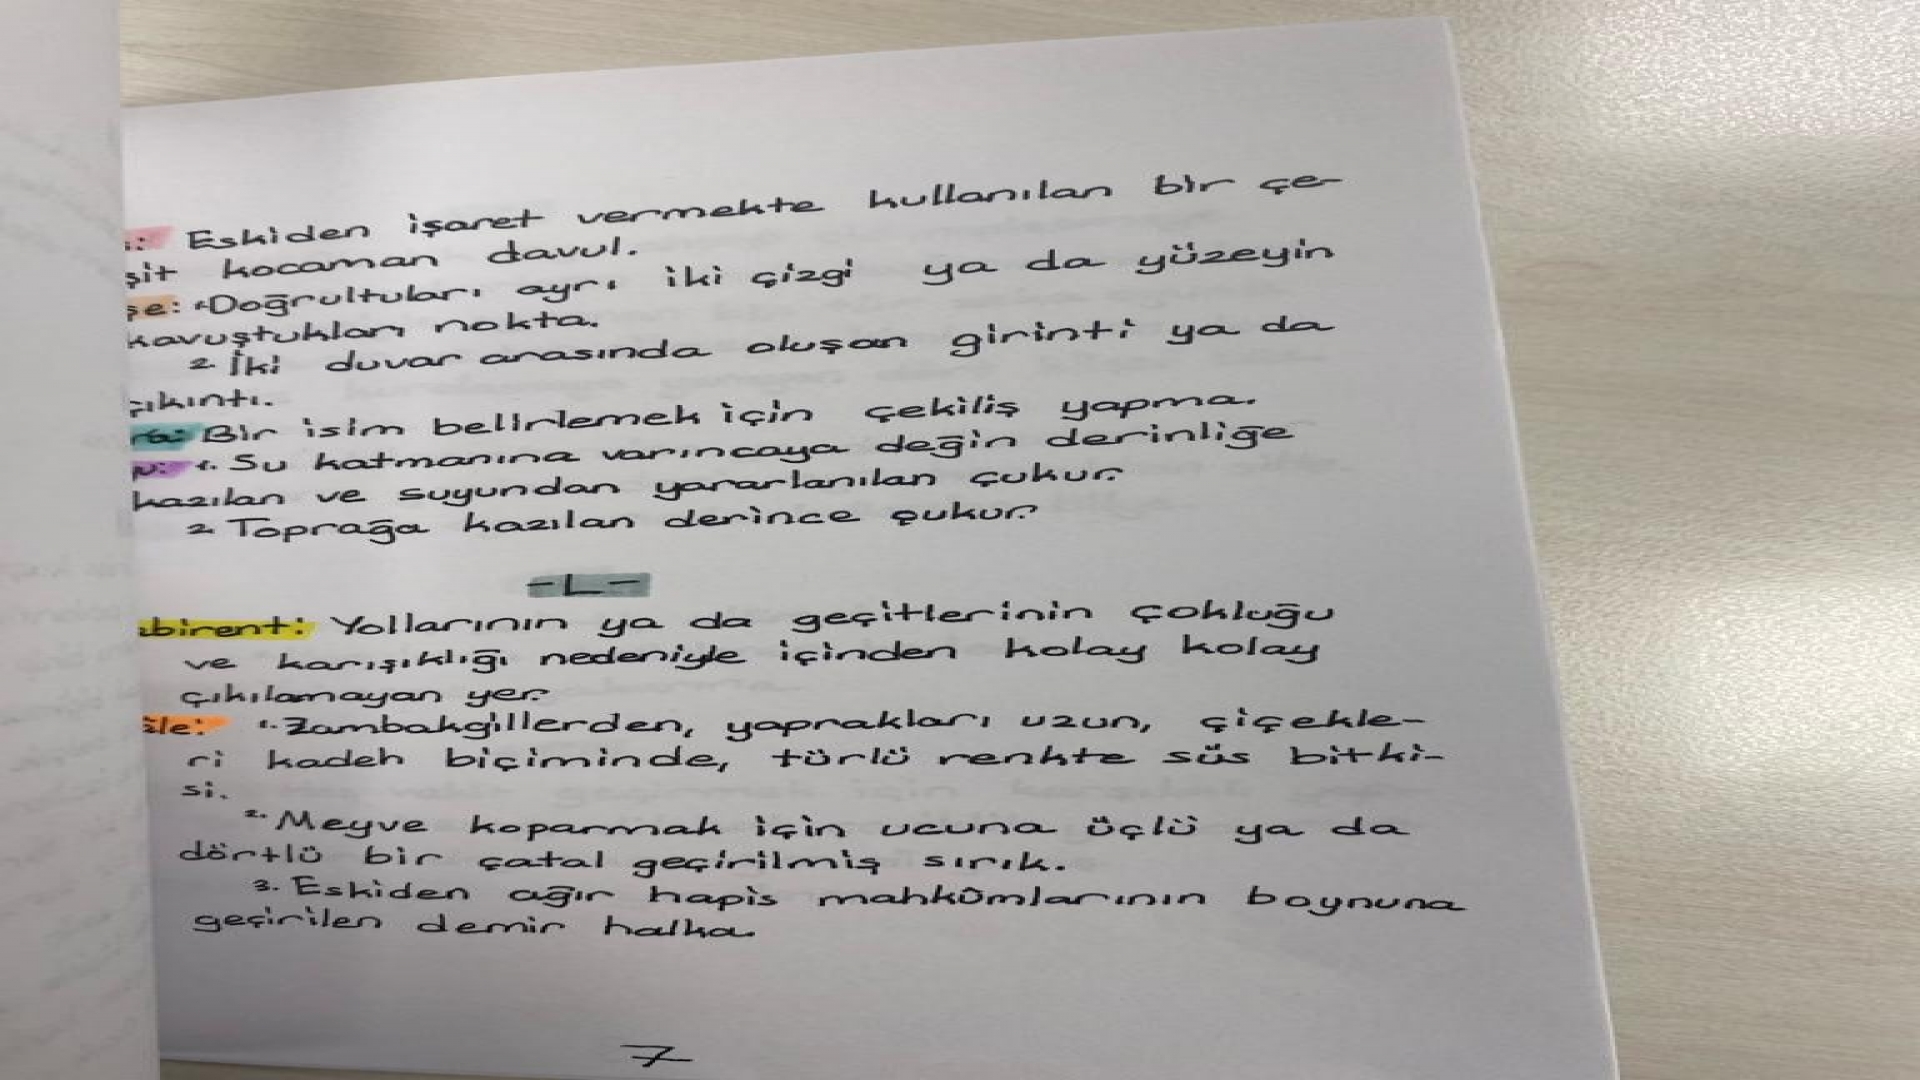 : Eskiden işaret vermekte kullanılan bir çe-
şit kocaman davul.
şe: 1. Doğrultuları ayrı iki çizgi ya da yüzeyin
kavuştukları nokta.
2. İki duvar arasında oluşan girinti ya da
çıkıntı.
ra: Bir isim belirlemek için çekiliş yapma.
1. Su katmanına varıncaya değin derinliğe
kazılan ve suyundan yararlanılan çukur.
2. Toprağa kazılan derince çukur.
-L-
birent: Yollarının ya da geçitlerinin çokluğu
ve karışıklığı nedeniyle içinden kolay kolay
çıkılamayan yer.
âle: 1. Zambakgillerden, yaprakları uzun, çiçekle-
ri kadeh biçiminde, türlü renkte süs bitki-
si.
2. Meyve koparmak için ucuna üçlü ya da
dörtlü bir çatal geçirilmiş sırık.
3. Eskiden ağır hapis mahkûmlarının boynuna
geçirilen demir halka.
7